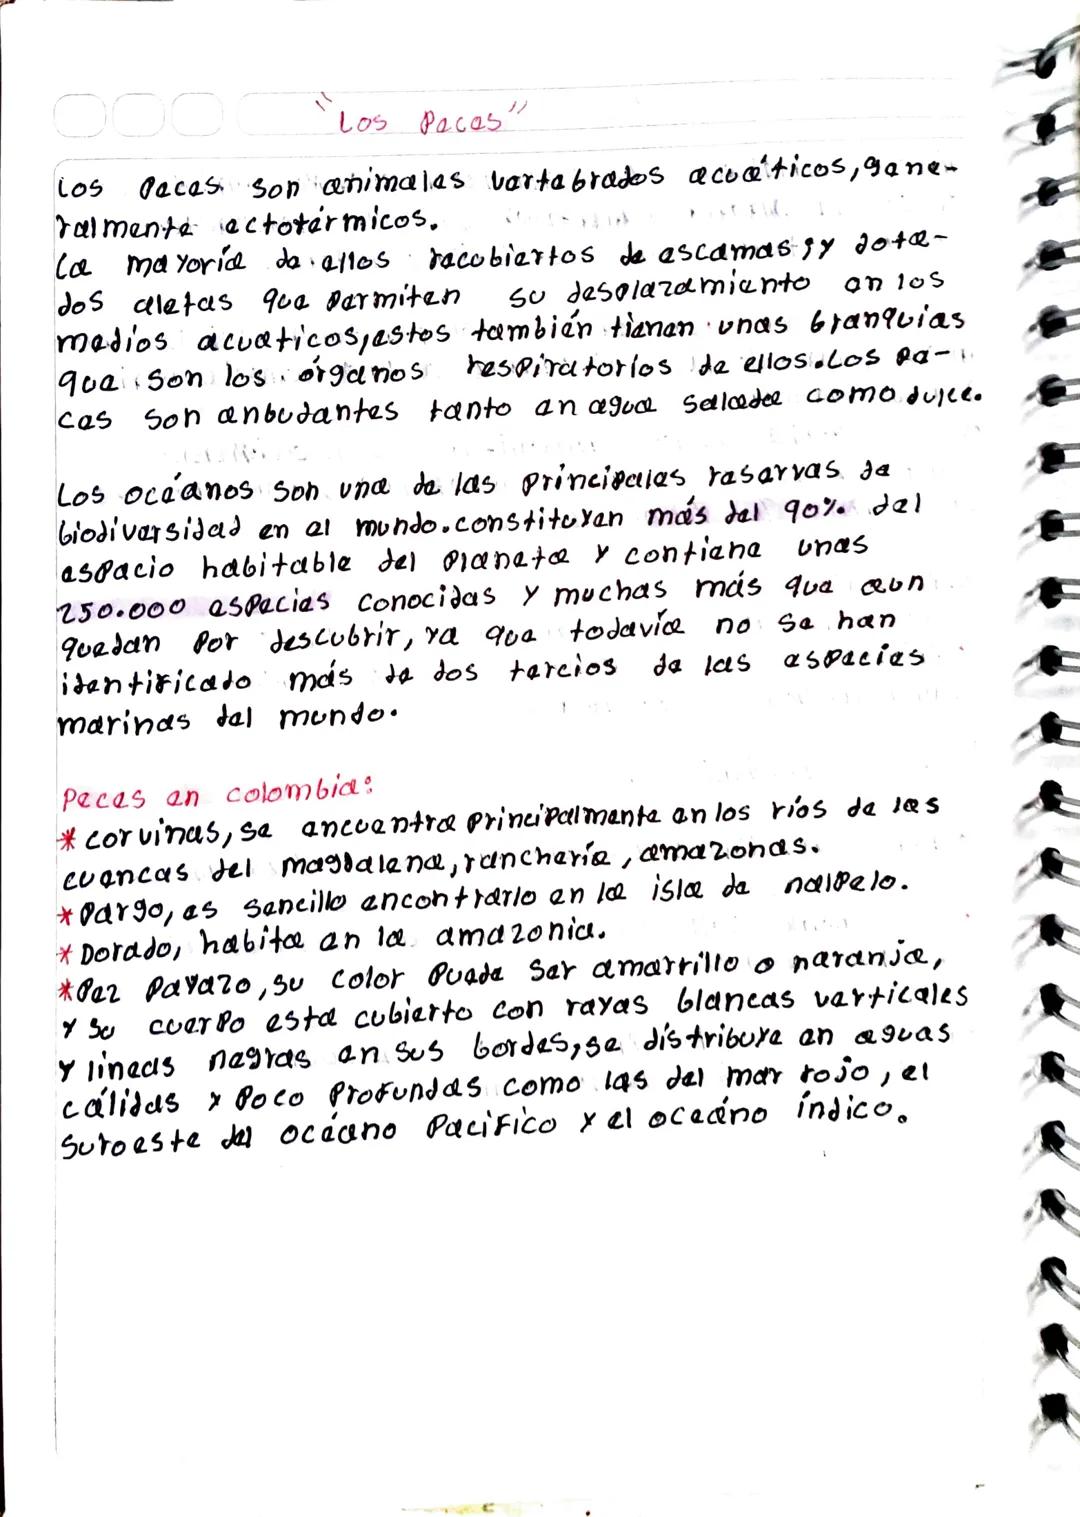 "Los Peces"
Los Peces son animales vertebrados acuáticos, gene-
ralmente ectotérmicos.
La mayoría de ellos recobiertos de escamas, y dota-
dos aletas que permiten su desplazamiento en los
medios acuaticos, estos también tienen unas branquias
que son los órganos respiratorios de ellos. Los pe-
ces son anbudantes tanto en agua salada como dulce.
Los océanos son una de las principales reservas de
biodiversidad en el mundo. constituyen más del 90% del
espacio habitable del planeta y contiene unas
250.000 especies conocidas y muchas más que aun
quedan por descubrir, ya que todavía no se han
identificado más de dos tercios de las especies
marinas del mundo.
Peces en colombia:
* corvinas, se encuentra principalmente en los ríos de las
cuencas del magdalena, ranchería, amazonas.
* Pargo, es sencillo encontrarlo en la isla de nalpelo.
* Dorado, habita en la amazonia.
* Pez Payazo, su color Puede ser amarrillo o naranja,
y su cuerpo esta cubierto con rayas blancas verticales
y lineas negras en sus bordes, se distribuye en aguas
cálidas y poco profundas como las del mar rojo, el
suroeste del océano Pacifico y el oceáno índico.